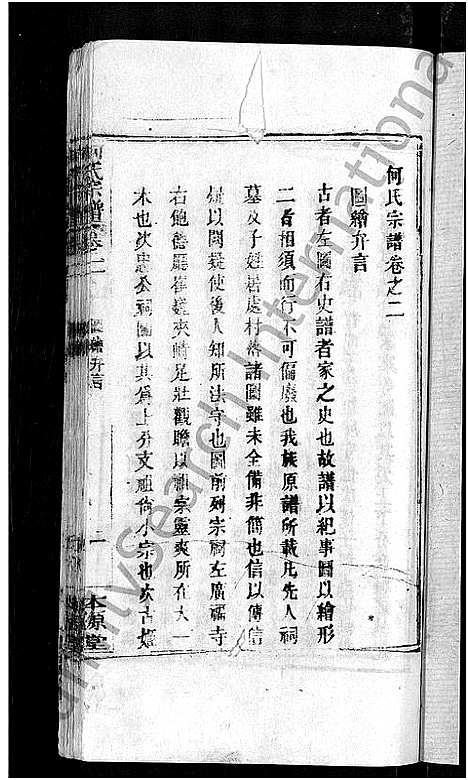 何氏宗譜卷之二
圖繪弁言
古者左圖右史譜者家之史也故譜以紀事圖以繪形
二者相須而行不可偏廢也我族原譜所載凡先人祠
墓及子姓居處村落諸圖雖未全備非簡也信以傳信
疑以闕疑使後人知所法守也圖前列宗祠左廣福寺
右鮑德廳崔巍夾峙足壯觀瞻以祖宗靈爽所在大一
本也次忠公祠圖以其爲上分支祖倘小宗也次古
何氏宗譜 卷之二
圖繪弁言
二
本源堂
FamilySearch International